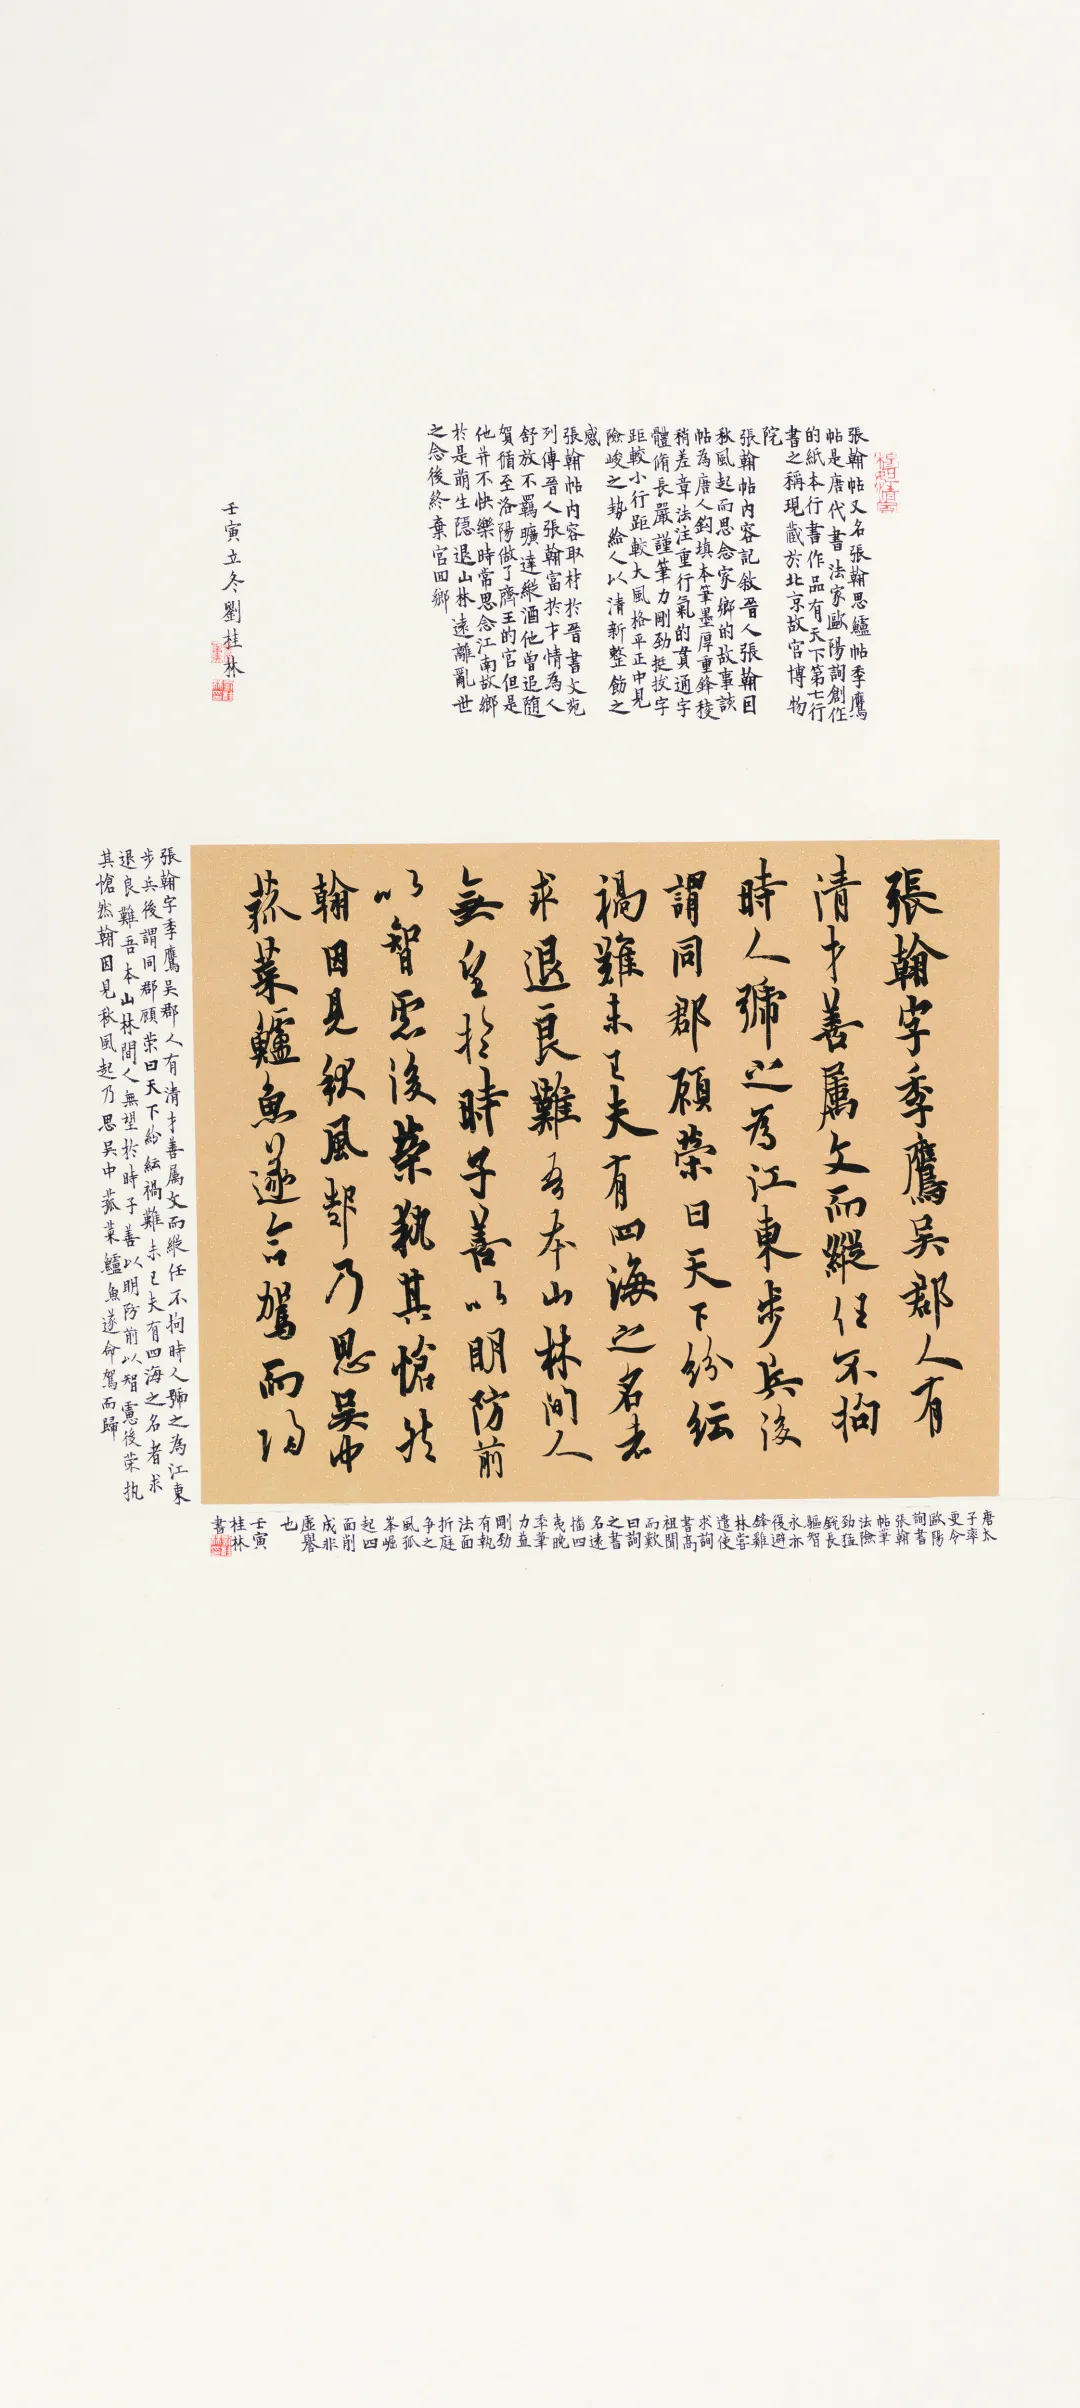 張翰帖又名張翰思鱸帖季鷹
帖是唐代書法家歐陽詢創作
的紙本行書作品有天下第七行
書之稱現藏於北京故宮博物
院
張翰帖内容記敘晉人張翰因
秋風起而思念家鄉的故事該
帖為唐人鈎填本筆墨厚重鋒稜
稍差章法注重行氣的貫通字
體脩長嚴謹筆力剛勁挺拔字
距較小行距較大風格平正中見
險峻之勢給人以清新整飭之
感
張翰帖内容取材於晉書文苑
列傳晉人張翰富於才情為人
舒放不羈曠達縱酒他曾追隨
賀循至洛陽做了齊王的官但是
他并不快樂時常思念江南故鄉
於是萌生隱退山林遠離亂世
之念後終棄官回鄉
壬寅立冬劉桂林
張翰字季鷹吳郡人有
清才善属文而縱任不拘
時人號之為江東步兵後
謂同郡顧榮曰天下紛紜
禍難未已夫有四海之名者
求退良難吾本山林間人
無望於時子善以明防前
以智慮後榮執其愴然
翰因見秋風起乃思吳中
菰菜鱸魚遂命駕而歸
張翰字季鷹吳郡人有清才善属文而縱任不拘時人號之為江東
步兵後謂同郡顧荣曰天下紛紜禍難未已夫有四海之名者求
退良難吾本山林間人無望於時子善以明防前以智慮後荣執
其愴然翰因見秋風起乃思吳中菰菜鱸魚遂命駕而歸
唐太
子率
更令
歐陽
詢書
張翰
帖筆
法險
勁猛
銳長
驅智
永亦
復避
鋒雞
林嘗
遣使
求詢
書高
祖聞
而歎
曰詢
之書
名遠
播四
夷晚
季筆
力益
剛勁
有執
法面
折庭
争之
風孤
峯崛
起四
面削
成非
虛譽
也
壬寅
桂林
書